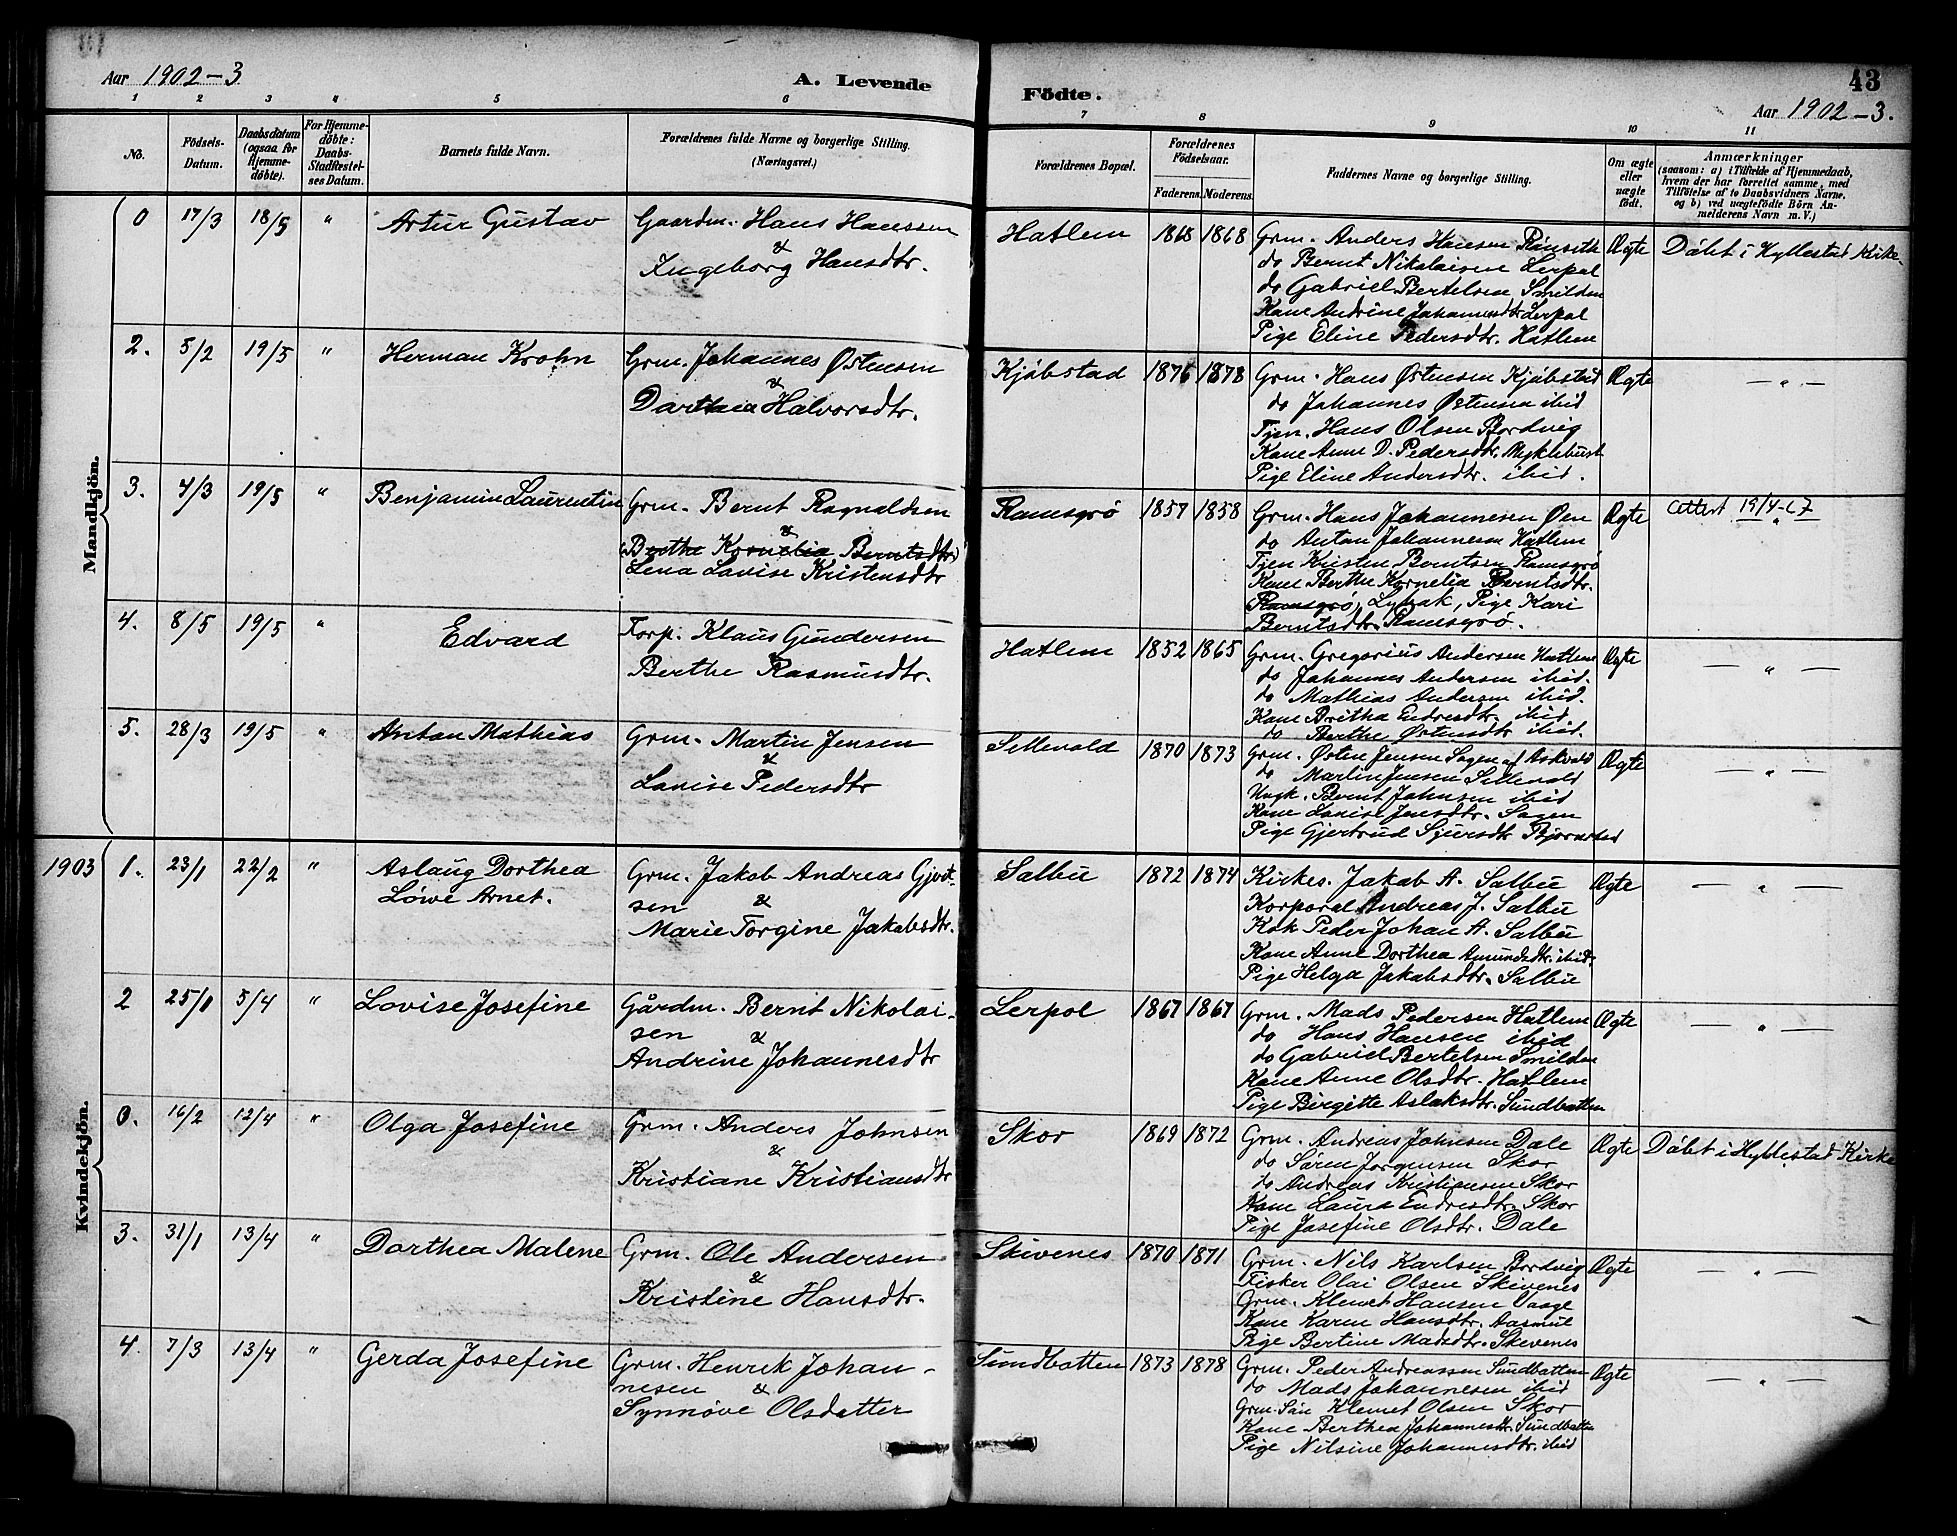 Aar 1902-3
A. Levende
Födte.
43
Aar 1902-3.
1 2 3 4 5 6 7 8 9 10 11
No.
Födsels-
Datum.
Daabsdatum
(ogsaa for
Hjemme-
döbte).
For Hjemme-
döbte:
Daabs-
Stadfestel-
ses Datum.
Barnets fulde Navn.
Forældrenes fulde Navne og borgerlige Stilling.
(Næringsvei.)
Forældrenes Bopæl.
Forældrenes
Födselsaar.
Faderens. Moderens.
Faddernes Navne og borgerlige Stilling.
Om ægte
eller
uægte
födt.
Anmærkninger
(saasom: a) i Tilfælde af Hjemmedaab,
hvem der har forrettet samme, med
Tilföielse af to Daabsvidners Navne,
og b) ved uægtefödte Börn An-
melderens Navn m. V.)
Mandkjön.
0 17/3 18/5 " Artur Gustav
Gaardm. Hans Hanssen
&
Ingeborg Hansdtr.
Hatlem 1868 1868
Grm. Anders Hansen Rinseth
do Bernt Nikolaisen Lerpol
do Gabriel Bertelsen Smilden
Kane Andrine Johannesdtr. Lerpol
Pige Eline Pedersdtr. Hatlem
Ægte Döbt i Hyllestad Kirke.
2. 5/2 19/5 " Herman Krohn
Grm. Johannes Østensen
&
Dorthea Halvorsdtr.
Kjøbstad 1876 1878
Grm. Hans Østensen Kjøbstad
do Johannes Østensen ibid
Tjen. Hans Olsen Bordvig
Kane Anne D. Pedersdtr. Myklebust
Pige Eline Andersdtr. ibid.
Ægte — " —
3. 4/3 19/5 " Benjamin Laurentin
Grm. Bernt Ragnaldsen
&
(Berthe Kornelia Berntsdtr)
Lena Lovise Kristensdtr
Ramsgrø 1857 1858
Grm. Hans Johannesen Øen
do Anton Johannesen Hatlem
Tjen Kristen Berntsen Ramsgrø
Kane Berthe Kornelia Berntsdtr.
Ramsgrø, Pige Kari
Berntsdtr. Ramsgrø.
Ægte 19/4-67
4. 8/5 19/5 " Edvard
Torp. Klaus Gundersen
Berthe Rasmusdtr.
Hatlem 1852 1865
Grm. Gregorius Andersen Hatlem
do Johannes Andersen ibid.
do Mathias Andersen ibid.
Kane Britha Endresdtr. ibid
do Berthe Østensdtr ibid.
Ægte — " —
5. 28/3 19/5 " Anton Mathias
Grm. Martin Jensen
&
Lovise Pedersdtr
Sellevold 1870 1873
Grm. Østen Jensen Sagen af Askvold
do Martin Jensen Sellevold
Ungk. Bernt Johnsen ibid
Kane Lovise Jensdtr. Sagen
Pige Gjertrud Sjursdtr Bjørnstad
Ægte — " —
Kvindekjön.
1903 1. 23/1 22/2 " Aslaug Dorthea
Løwe Arnet.
Grm. Jakob Andreas Gjert-
sen &
Marie Torgine Jakobsdtr.
Salbu 1872 1874
Kirkes. Jakob A. Salbu
Korporal Andreas J. Salbu
Kok Peder Johan A. Salbu
Kane Anne Dorthea Amundsdtr. ibid.
Pige Helga Jakobsdtr. Salbu
Ægte — " —
2 25/1 5/4 " Lovise Josefine
Gårdm. Bernt Nikolai-
sen &
Andrine Johannesdtr
Lerpol 1867 1867
Grm. Mads Pedersen Hatlem
do Hans Hansen ibid
do Gabriel Bertelsen Smilden
Kane Anne Olsdtr. Hatlem
Pige Birgitte Aslaksdtr. Sundbotten
Ægte — " —
0. 16/2 12/4 " Olga Josefine
Grm. Anders Johnsen
&
Kristiane Kristiansdtr
Skor 1869 1872
Grm. Andreas Johnsen Dale
do Søren Jørgensen Skor
do Andreas Kristiansen Skor
Kane Laura Endresdtr. Skor
Pige Josefine Olsdtr. Dale
Ægte Döbt i Hyllestad Kirke
3. 31/1 13/4 " Dorthea Malene
Grm. Ole Andersen
&
Kristine Hansdtr.
Skivenes 1870 1871
Grm. Nils Karlsen Bordvig
Fisker Olai Olsen Skivenes
Grm. Klemet Hansen Vaage
Kane Karen Hansdtr. Aasmul
Pige Bertine Madsdtr. Skivenes
Ægte — " —
4. 7/3 13/4 " Gerda Josefine
Grm. Henrik Johan-
nesen &
Synnøve Olsdatter
Sundbotten 1873 1878
Grm. Peder Andreassen Sundbotten
do Mads Johannesen ibid
Grm. Søn Klemet Olsen Skor
Kane Berthea Johannesdtr. Sundbotten
Pige Nilsine Johannesdtr. ibid
Ægte — " —